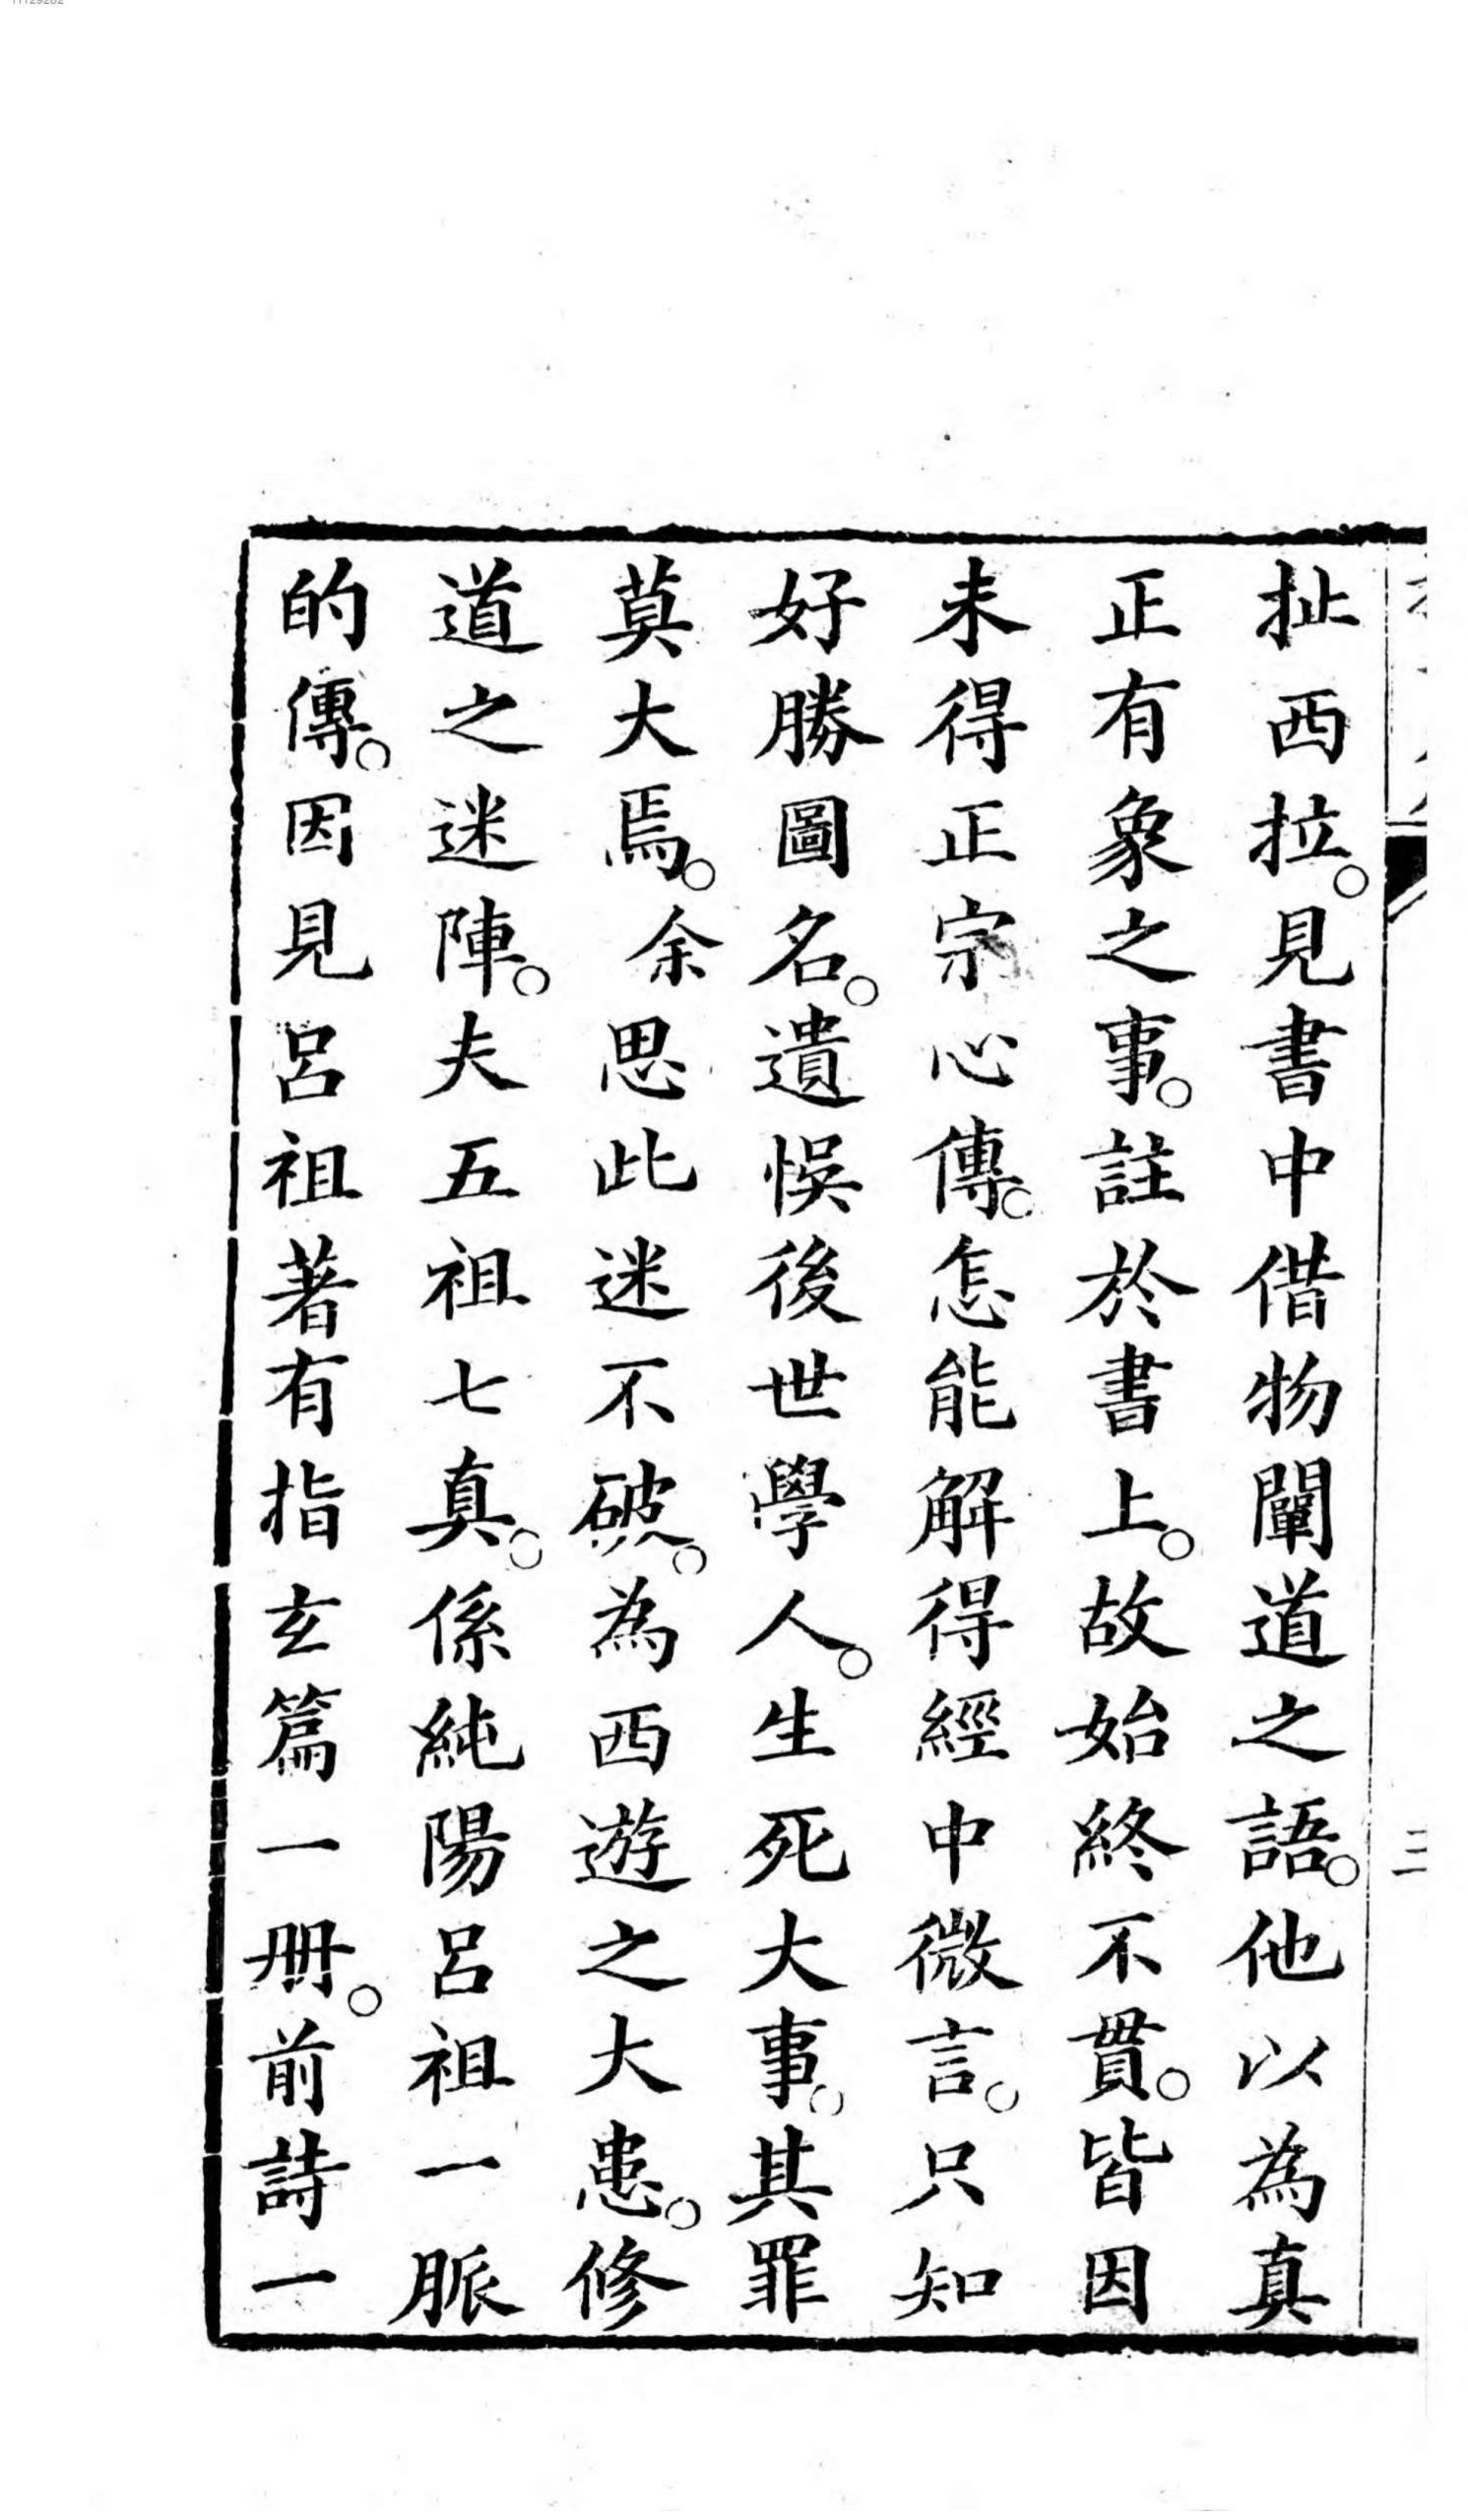 扯西拉。見書中借物闡道之語。他以為真
正有象之事。註於書上。故始終不貫。皆因
未得正宗心傳。怎能解得經中微言。只知
好勝圖名。遺悞後世學人。生死大事。其罪
莫大焉。余思此迷不破。為西遊之大患。修
道之迷陣。夫五祖七真。係純陽呂祖一脈
的傳。因見呂祖著有指玄篇一册。前詩一